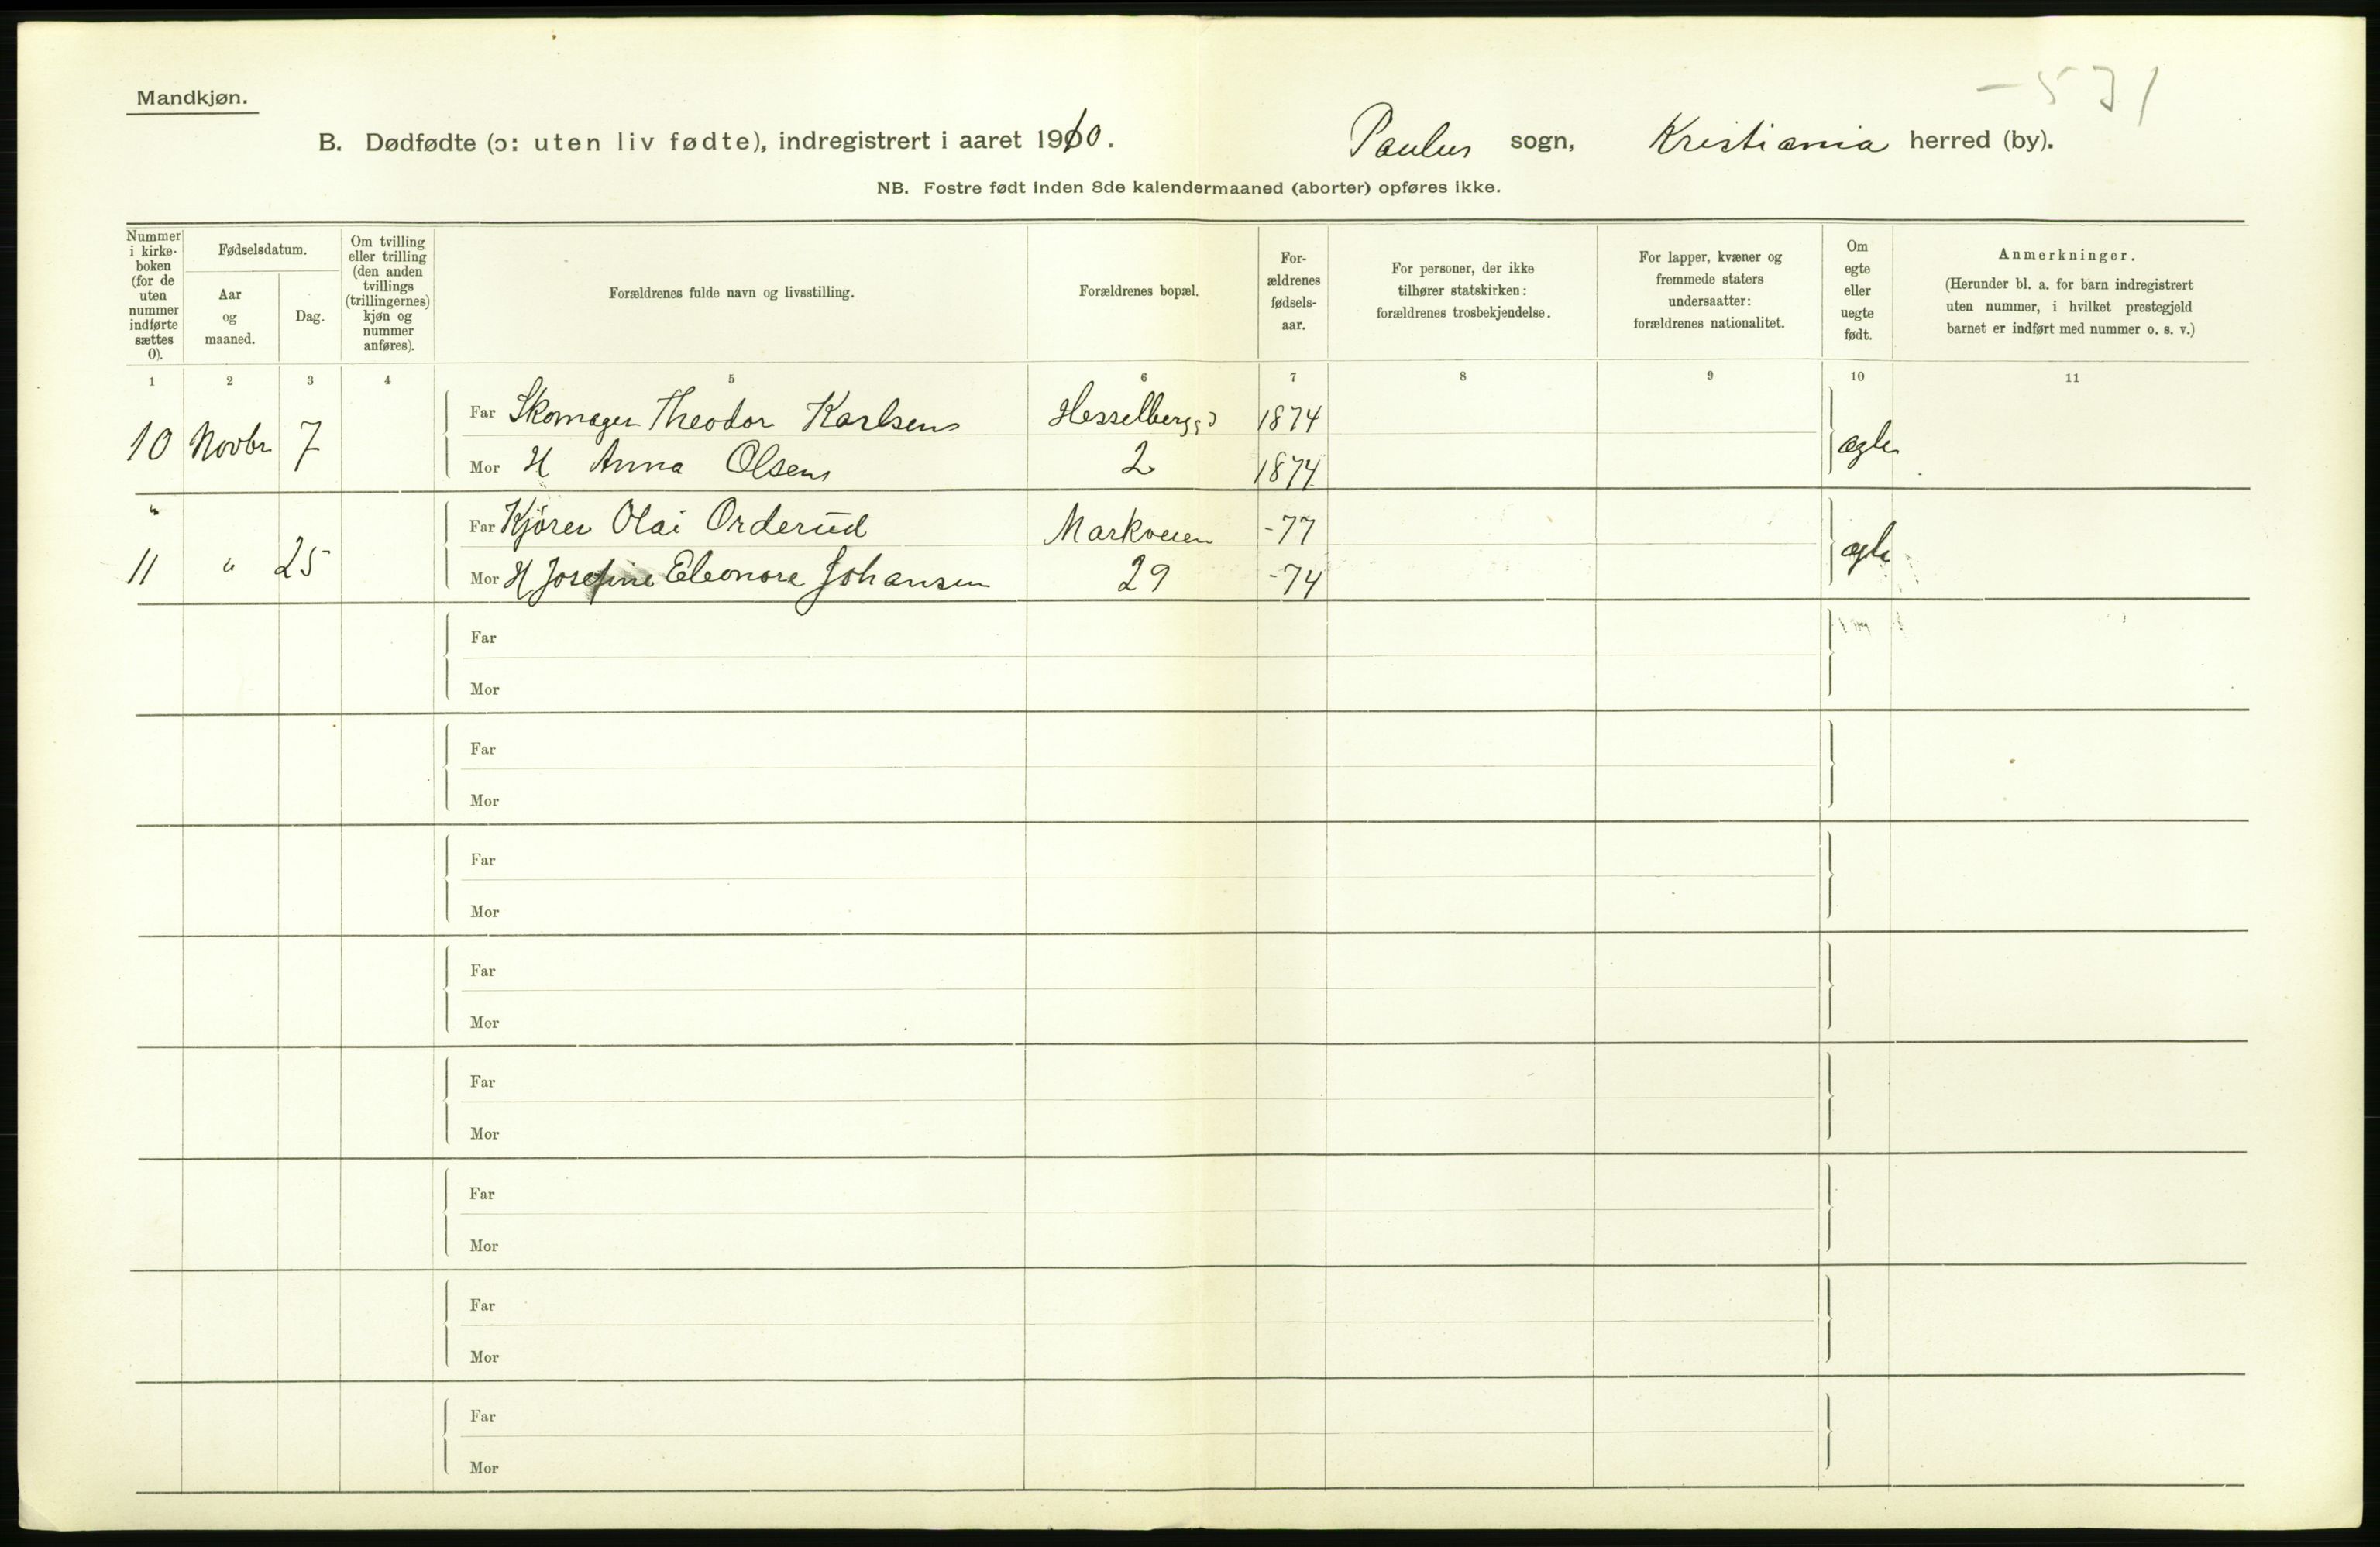 - 531
Mandkjøn.
B. Dødfødte (ɔ: uten liv fødte), indregistrert i aaret 1910. Paulus sogn, Kristiania herred (by).
NB. Fostre født inden 8de kalendermaaned (aborter) opføres ikke.
Nummer i kirke-boken (for de uten nummer indførte sættes 0).
Fødselsdatum.
Aar og maaned.
Dag.
Om tvilling eller trilling (den anden tvillings (trillingernes) kjøn og nummer anføres).
Forældrenes fulde navn og livsstilling.
Forældrenes bopæl.
For-ældrenes fødsels-aar.
For personer, der ikke tilhører statskirken: forældrenes trosbekjendelse.
For lapper, kvæner og fremmede staters undersaatter: forældrenes nationalitet.
Om egte eller uegte født.
Anmerkninger.
(Herunder bl. a. for barn indregistrert uten nummer, i hvilket prestegjeld barnet er indført med nummer o. s. v.)
1 2 3 4 5 6 7 8 9 10 11
Far Skomager Theodor Karlsen Hesselbergs 1874
10 Novbr 7 ægte
Mor H Anna Olsen 2 1874
"
Far Kjörer Olai Orderud Markveien -77
11 " 25 ægte
Mor H Josefine Eleonore Johansen 29 -74
Far
Mor
Far
Mor
Far
Mor
Far
Mor
Far
Mor
Far
Mor
Far
Mor
Far
Mor